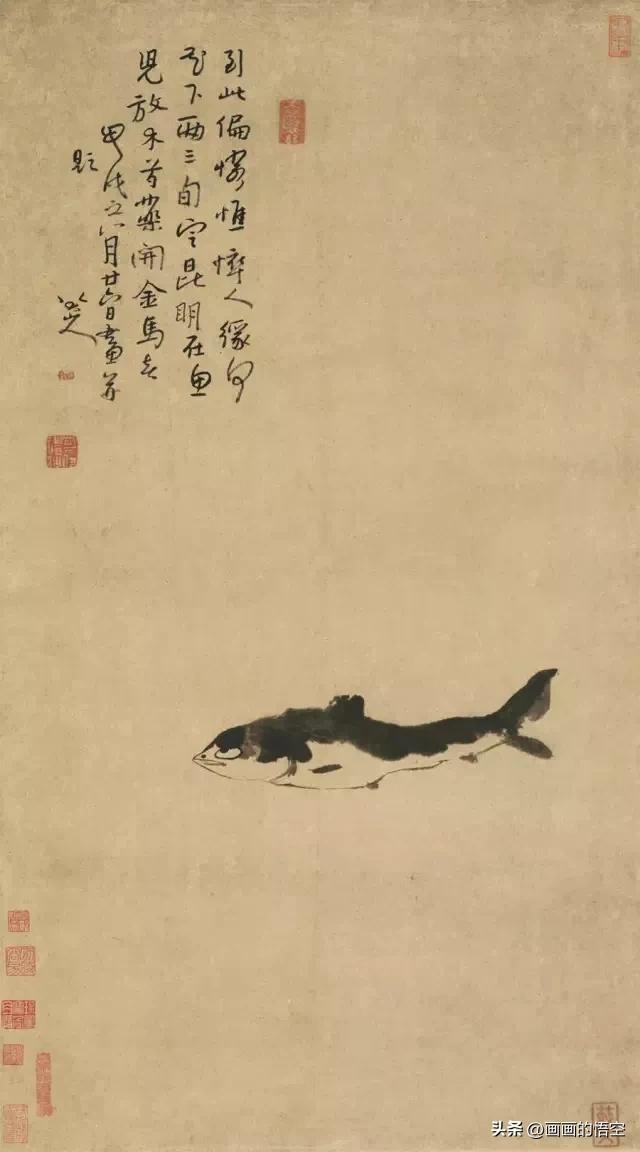 到此偏憐憔悴人緣何
花下兩三旬定昆明在魚
兒放木芍藥開金馬春
甲戌之六月廿六日畫并
題
八大山人
头条 @画画的悟空